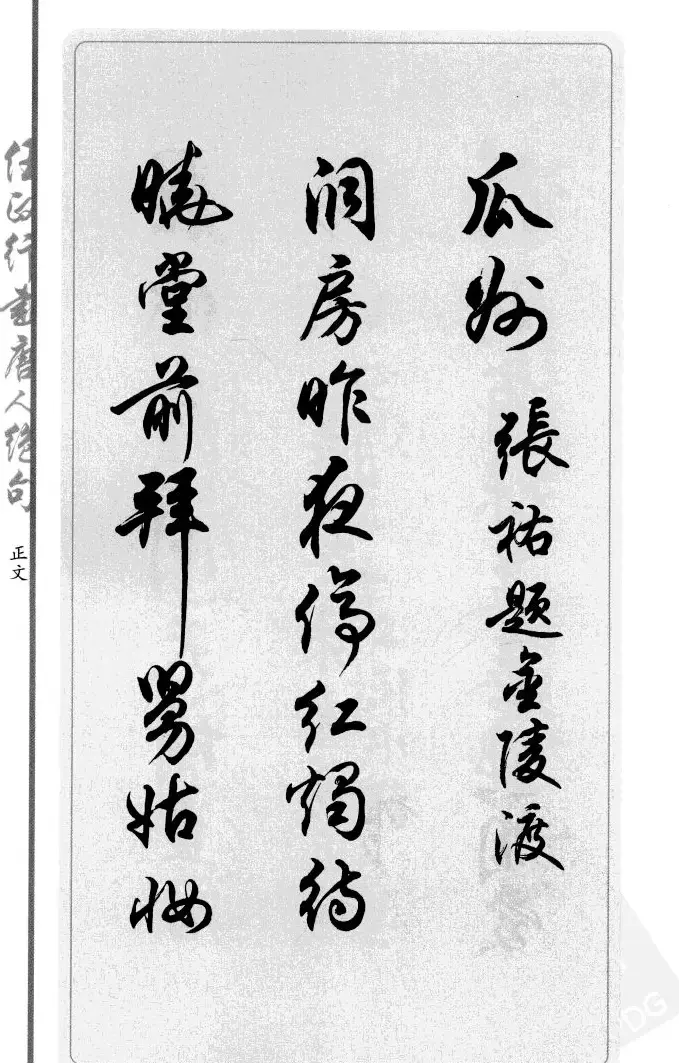 瓜州 張祐題金陵渡
洞房昨夜停红燭待
曉堂前拜舅姑妝
任政行書唐人绝句
正文